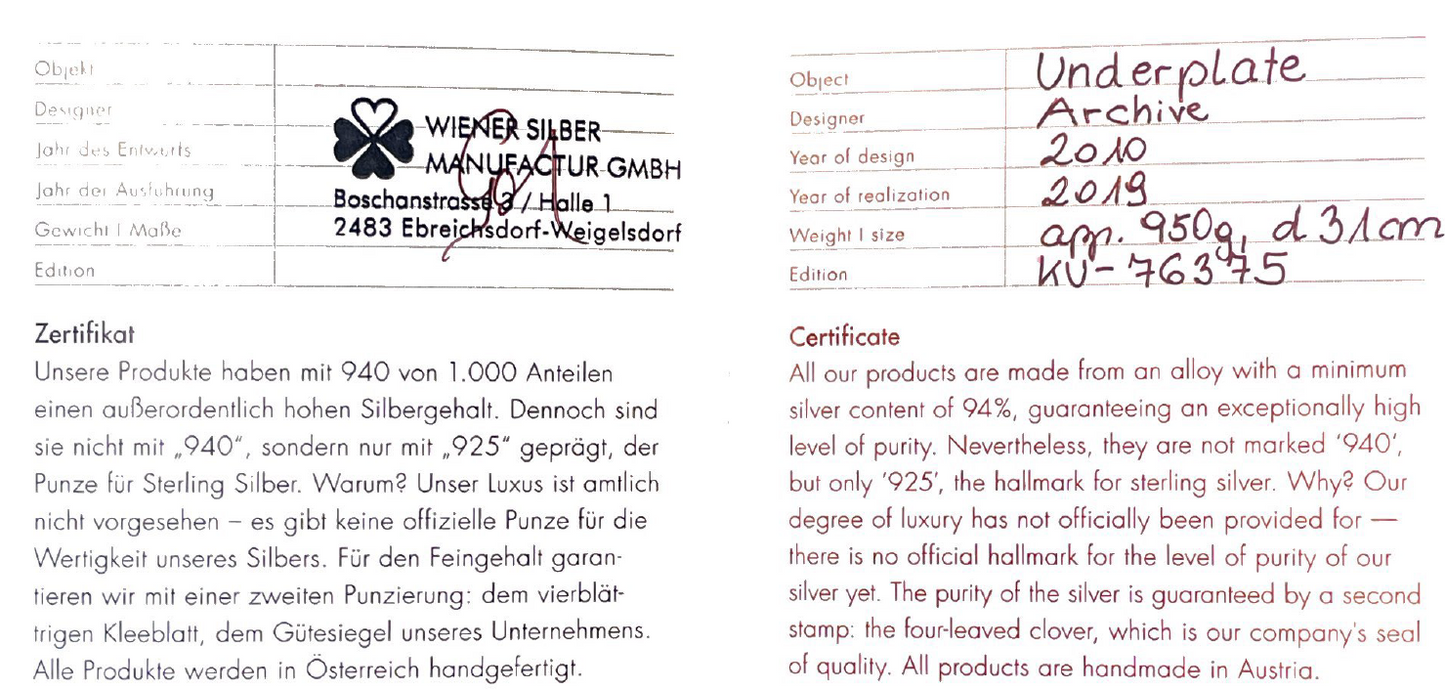 Objekt
Designer
Jahr des Entwurfs
Jahr der Ausführung
Gewicht | Maße
Edition
WIENER SILBER
MANUFACTUR GMBH
Boschanstrasse 3 / Halle 1
2483 Ebreichsdorf-Weigelsdorf
Zertifikat
Unsere Produkte haben mit 940 von 1.000 Anteilen
einen außerordentlich hohen Silbergehalt. Dennoch sind
sie nicht mit „940“, sondern nur mit „925“ geprägt, der
Punze für Sterling Silber. Warum? Unser Luxus ist amtlich
nicht vorgesehen – es gibt keine offizielle Punze für die
Wertigkeit unseres Silbers. Für den Feingehalt garan-
tieren wir mit einer zweiten Punzierung: dem vierblät-
trigen Kleeblatt, dem Gütesiegel unseres Unternehmens.
Alle Produkte werden in Österreich handgefertigt.
Object Underplate
Designer Archive
Year of design 2010
Year of realization 2019
Weight | size app. 950g, d 31cm
Edition KU-76375
Certificate
All our products are made from an alloy with a minimum
silver content of 94%, guaranteeing an exceptionally high
level of purity. Nevertheless, they are not marked ‘940’,
but only ‘925’, the hallmark for sterling silver. Why? Our
degree of luxury has not officially been provided for —
there is no official hallmark for the level of purity of our
silver yet. The purity of the silver is guaranteed by a second
stamp: the four-leaved clover, which is our company's seal
of quality. All products are handmade in Austria.